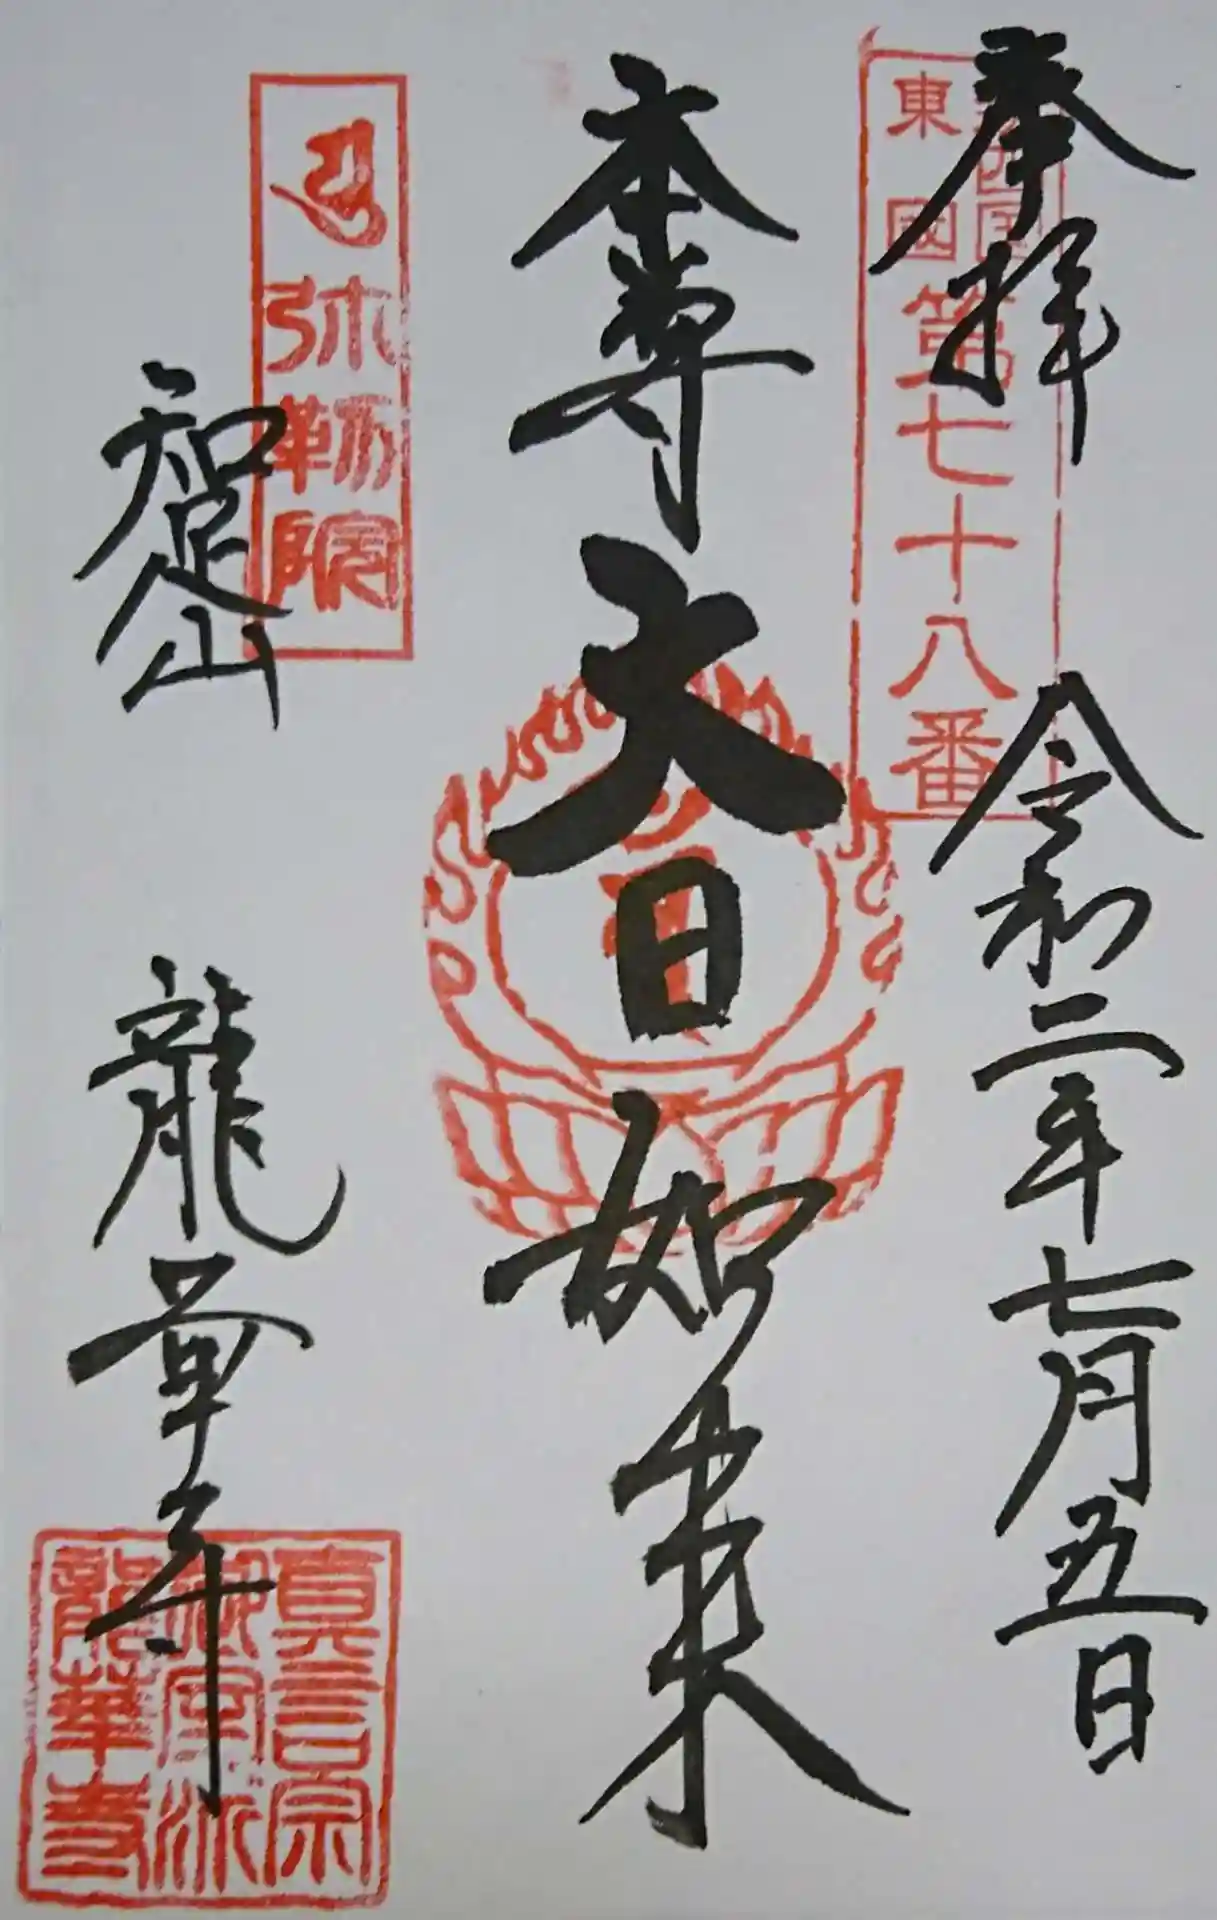 奉拝
令和二年七月五日
東國
四国
第七十八番
本尊
大日如来
弥勒院
知足山
龍華寺
真言宗
御室派
龍華寺